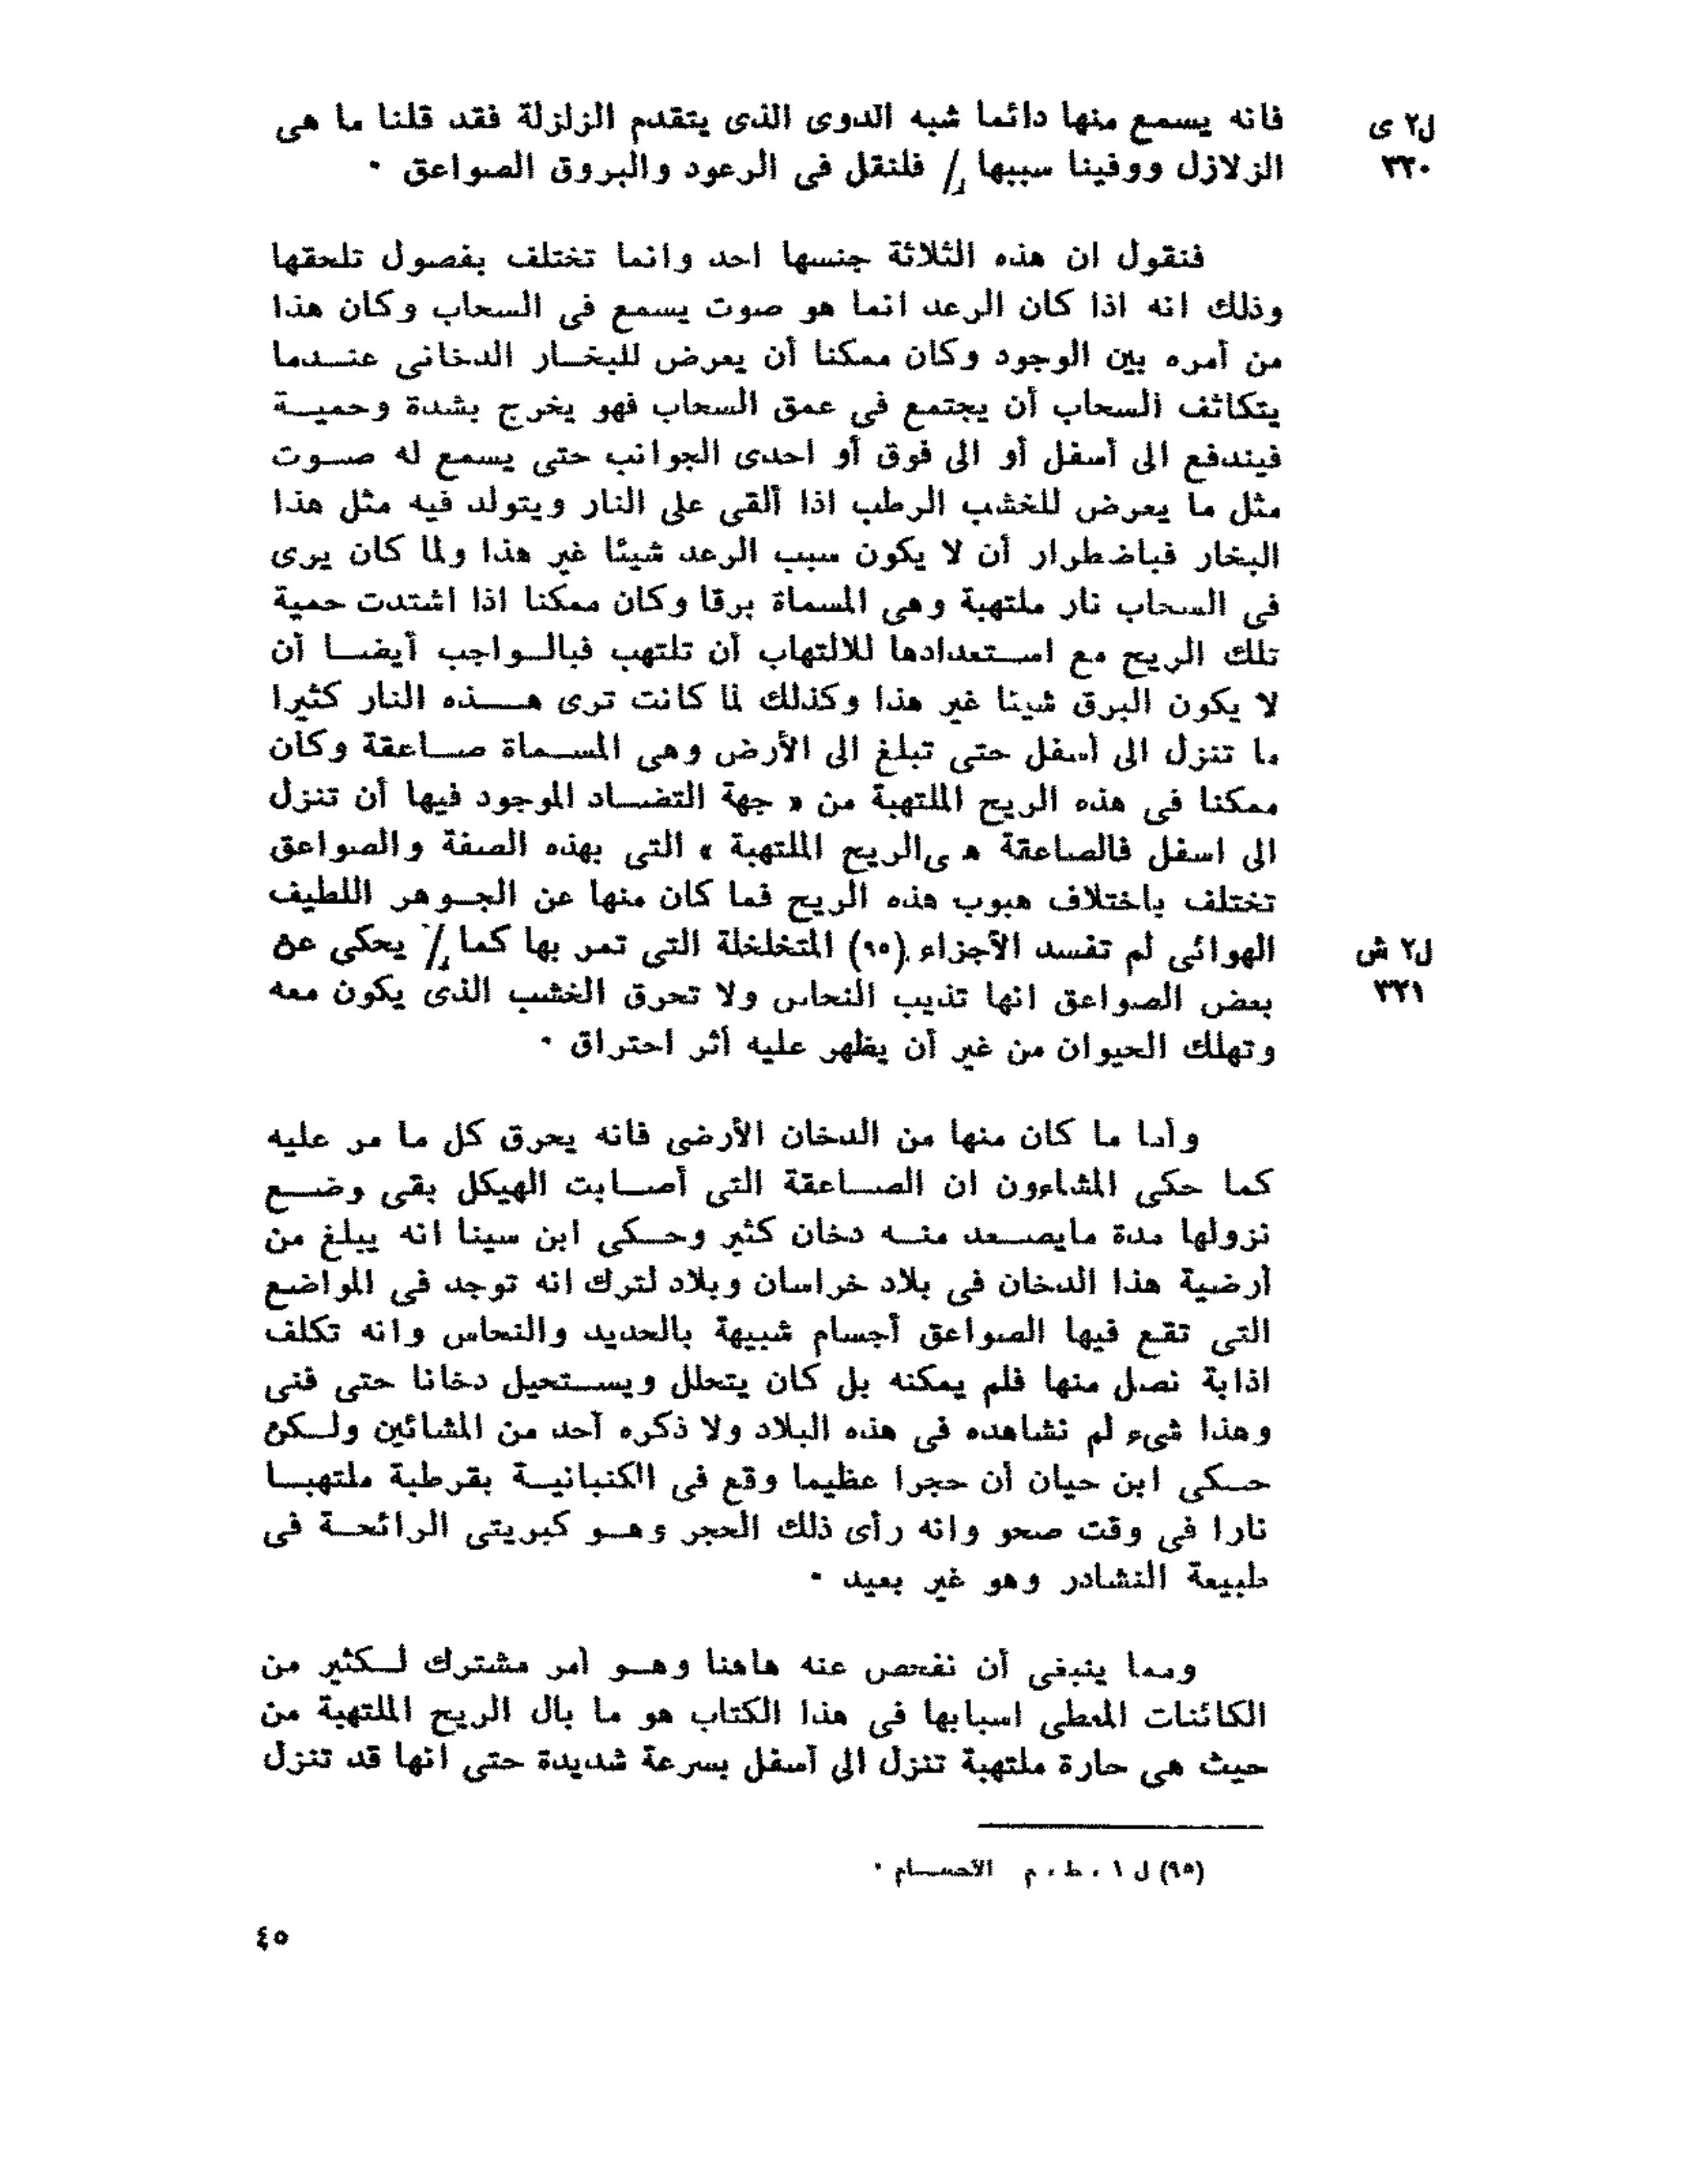 فانه يسمع منها دائما شبه الدوى الذى يتقدم الزلزلة فقد قلنا ما هى
ل٢ ى
الزلازل ووفينا سببها // فلنقل فى الرعود والبروق الصواعق ٠
٣٢٠
فنقول ان هذه الثلاثة جنسها احد وانما تختلف بفصول تلحقها
وذلك انه اذا كان الرعد انما هو صوت يسمع فى السحاب وكان هذا
من أمره بين الوجود وكان ممكنا أن يعرض للبخـار الدخانى عنـدما
يتكاثف السحاب أن يجتمع فى عمق السحاب فهو يخرج بشدة وحميـة
فيندفع الى أسفل أو الى فوق أو احدى الجوانب حتى يسمع له صـوت
مثل ما يعرض للخشب الرطب اذا ألقى على النار ويتولد فيه مثل هذا
البخار فباضطرار أن لا يكون سبب الرعد شيئا غير هذا ولما كان يرى
فى السحاب نار ملتهبة وهى المسماة برقا وكان ممكنا اذا اشتدت حمية
تلك الريح مع اسـتعدادها للالتهاب أن تلتهب فبالـواجب أيضـا أن
لا يكون البرق شيئا غير هذا وكذلك لما كانت ترى هـذه النار كثيرا
ما تنزل الى أسفل حتى تبلغ الى الأرض وهى المسـماة صـاعقة وكان
ممكنا فى هذه الريح الملتهبة من « جهة التضـاد الموجود فيها أن تنزل
الى اسفل فالصاعقة ه ىالريح الملتهبة » التى بهذه الصفة والصواعق
تختلف باختلاف هبوب هذه الريح فما كان منها عن الجـوهر اللطيف
الهوائى لم تفسد الأجزاء (٩٥) المتخلخلة التى تمر بها كما // يحكى عن
ل٢ ش
بعض الصواعق انها تذيب النحاس ولا تحرق الخشب الذى يكون معه
٣٢١
وتهلك الحيوان من غير أن يظهر عليه أثر احتراق ٠
وأما ما كان منها من الدخان الأرضى فانه يحرق كل ما مر عليه
كما حكى المشاءون ان الصـاعقة التى أصـابت الهيكل بقى وضـع
نزولها مدة مايصـعد منـه دخان كثير وحـكى ابن سينا انه يبلغ من
أرضية هذا الدخان فى بلاد خراسان وبلاد لترك انه توجد فى المواضع
التى تقع فيها الصواعق أجسام شبيهة بالحديد والنحاس وانه تكلف
اذابة نصل منها فلم يمكنه بل كان يتحلل ويسـتحيل دخانا حتى فنى
وهذا شىء لم نشاهده فى هذه البلاد ولا ذكره أحد من المشائين ولـكن
حـكى ابن حيان أن حجرا عظيما وقع فى الكنبانيـة بقرطبة ملتهبـا
نارا فى وقت صحو وانه رأى ذلك الحجر وهـو كبريتى الرائحـة فى
طبيعة النشادر وهو غير بعيد ٠
ومما ينبغى أن نفحص عنه هاهنا وهـو أمر مشترك لـكثير من
الكائنات المعطى اسبابها فى هذا الكتاب هو ما بال الريح الملتهبة من
حيث هى حارة ملتهبة تنزل الى أسفل بسرعة شديدة حتى انها قد تنزل
(٩٥) ل ١ ، ط ، م الأجسـام ٠
٤٥